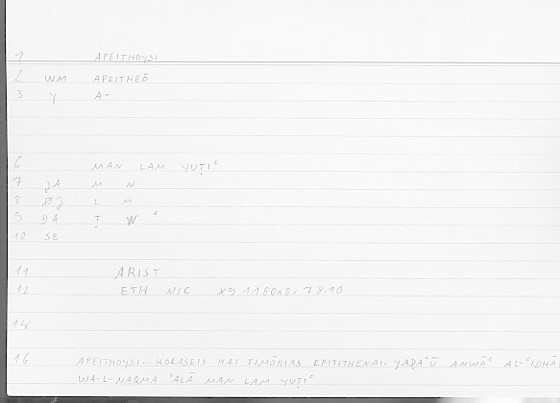 1 APEITHOYSI
2 WM APEITHEŌ
3 Y A-
6 MAN LAM YUṬIʿ
7 JA M N
8 ØJ L M
9 DA Ṭ W ʿ
10 SE
11 ARIST
12 ETH NIC X9 1180A8
14
16 APEITHOYSI... KOLASEIS KAI TIMŌRIAS EPITITHENAI. YAḌAʿŪ ANWĀʿ AL-
WA-L-NAQMA ʿALĀ MAN LAM YUṬIʿ